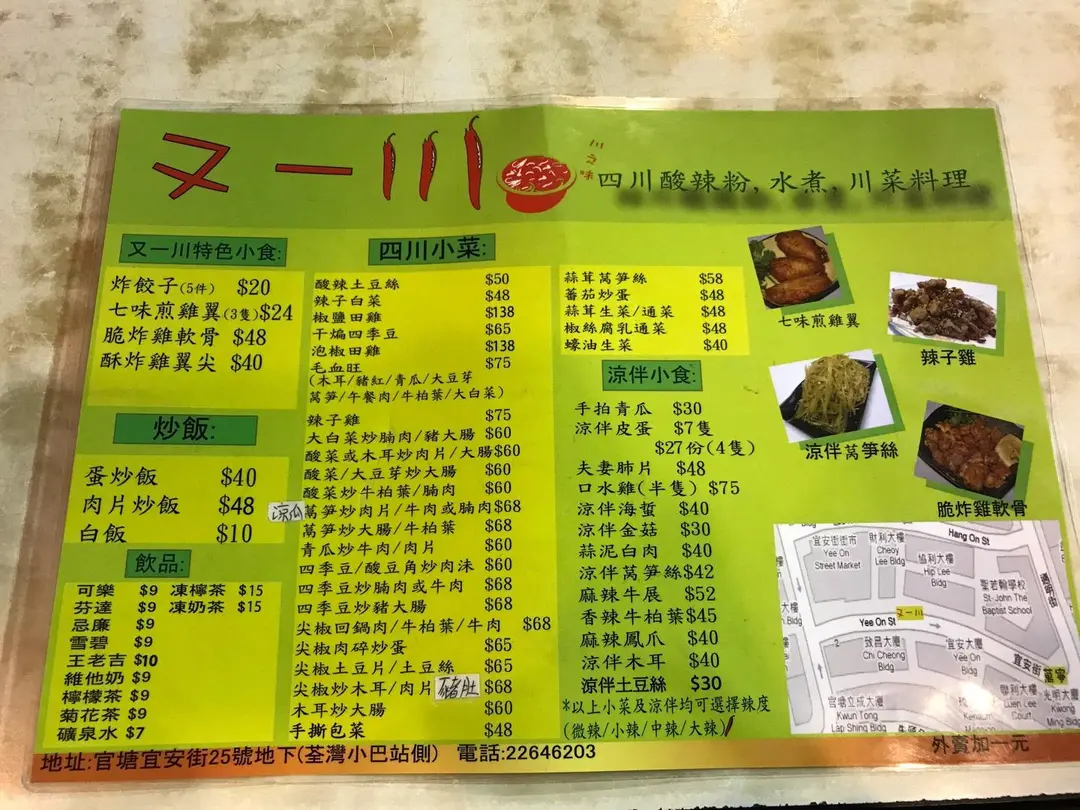 又一川
川之味
四川酸辣粉,水煮,川菜料理
又一川特色小食:
炸餃子(5件) $20
七味煎雞翼(3隻)$24
脆炸雞軟骨 $48
酥炸雞翼尖 $40
炒飯:
蛋炒飯 $40
肉片炒飯 $48
白飯 $10
飲品:
可樂 $9 凍檸茶 $15
芬達 $9 凍奶茶 $15
忌廉 $9
雪碧 $9
王老吉 $10
維他奶 $9
檸檬茶 $9
菊花茶 $9
礦泉水 $7
四川小菜:
酸辣土豆絲 $50
辣子白菜 $48
椒鹽田雞 $138
干煸四季豆 $65
泡椒田雞 $138
毛血旺 $75
(木耳/豬紅/青瓜/大豆芽
萵笋/午餐肉/牛柏葉/大白菜)
辣子雞 $75
大白菜炒腩肉/豬大腸 $60
酸菜或木耳炒肉片/大腸$60
酸菜/大豆芽炒大腸 $60
酸菜炒牛柏葉/腩肉 $60
涼瓜
萵笋炒肉片/牛肉或腩肉$68
萵笋炒大腸/牛柏葉 $68
青瓜炒牛肉/肉片 $60
四季豆/酸豆角炒肉沬 $60
四季豆炒腩肉或牛肉 $68
四季豆炒豬大腸 $68
尖椒回鍋肉/牛柏葉/牛肉 $68
尖椒肉碎炒蛋 $65
尖椒土豆片/土豆絲 $65
尖椒炒木耳/肉片 豬肚 $68
木耳炒大腸 $60
手撕包菜 $48
蒜茸萵笋絲 $58
蕃茄炒蛋 $48
蒜茸生菜/通菜 $48
椒絲腐乳通菜 $48
蠔油生菜 $40
涼伴小食:
手拍青瓜 $30
涼伴皮蛋 $7隻
$27份(4隻)
夫妻肺片 $48
口水雞(半隻) $75
涼伴海蜇 $40
涼伴金菇 $30
蒜泥白肉 $40
涼伴萵笋絲$42
麻辣牛展 $52
香辣牛柏葉$45
麻辣鳳爪 $40
涼伴木耳 $40
涼伴土豆絲 $30
*以上小菜及涼伴均可選擇辣度
(微辣/小辣/中辣/大辣)
七味煎雞翼
辣子雞
涼伴萵笋絲
脆炸雞軟骨
Bldg
Hang On St
宜安街街市
Yee On
Street Market
財利大樓
Cheoy
Lee Bldg
協利大樓
Hip Lee
Bldg
聖若翰學校
St-John The
Baptist School
通明街
Yee On St
又一川
2
致昌大廈
Chi Cheong
Bldg
宜安大廈
Yee On
Bldg
宜安街
官塘立成大廈
Kwun Tong
Lap Shing Bldg
聯利大樓
Luen Lee
Court
光明大廈
Kwong
Ming Bldg
外賣加一元
地址:官塘宜安街25號地下(荃灣小巴站側) 電話:22646203